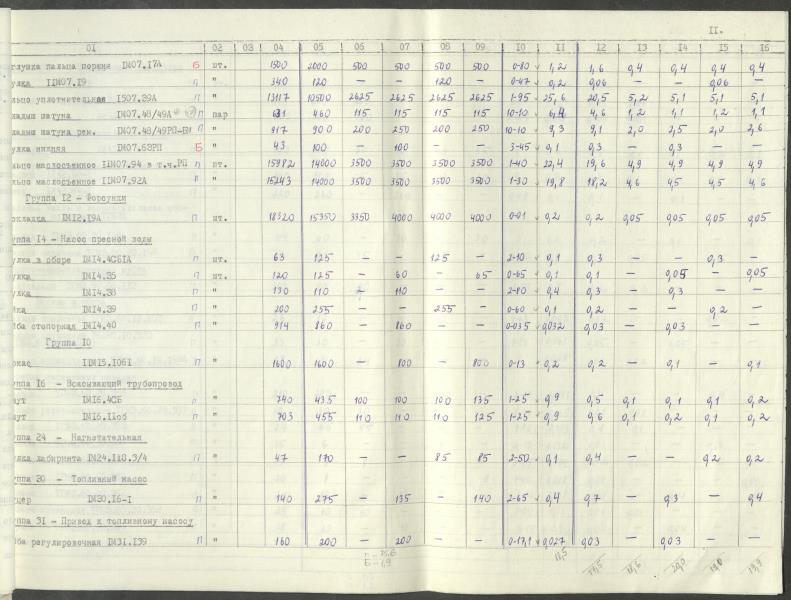 II.
01 02 03 04 05 06 07 08 09 10 11 12 13 14 15 16
глушка пальца поршня IМ07.17А Б шт. 1500 2000 500 500 500 500 0-80 1,2 1,6 0,4 0,4 0,4 0,4
улка IIМ07.19 П " 340 120 — — 120 — 0-47 0,2 0,06 — — 0,06 —
льцо уплотнительная I507.39А П " 13117 10500 2625 2625 2625 2625 1-95 25,6 20,5 5,2 5,1 5,1 5,1
ладыш шатуна IМ07.48/49А П пар 631 460 115 115 115 115 10-10 6,4 4,6 1,2 1,1 1,2 1,1
ладыш шатуна рем. IМ07.48/49РП-ВИ П " 917 900 200 250 200 250 10-10 9,3 9,1 2,0 2,5 2,0 2,6
улка нижняя IМ07.63РП Б " 43 100 — 100 — — 3-45 0,1 0,3 — 0,3 — —
льцо маслосъемное IIМ07.94 в т.ч.РП П " 15982 14000 3500 3500 3500 3500 1-40 22,4 19,6 4,9 4,9 4,9 4,9
льцо маслосъемное IIМ07.92А П " 15243 14000 3500 3500 3500 3500 1-30 19,8 18,2 4,6 4,5 4,5 4,6
Группа I2 - Форсунки
окладка IМ12.19А П шт. 18320 15350 3350 4000 4000 4000 0-01 0,2 0,2 0,05 0,05 0,05 0,05
уппа I4 - Насос пресной воды
улка в сборе IМ14.4СБ1А П шт. 63 125 — — 125 — 2-10 0,1 0,3 — — 0,3 —
улка IМ14.35 П шт. 120 125 — 60 — 65 0-65 0,1 0,1 — 0,05 — 0,05
улка IМ14.38 П " 130 110 — 110 — — 2-80 0,4 0,3 — 0,3 — —
йка IМ14.39 П " 200 255 — — 255 — 0-60 0,1 0,2 — — 0,2 —
йба стопорная IМ14.40 П " 914 860 — 860 — — 0-035 0,032 0,03 — 0,03 — —
Группа I0
ркас IIМ15.1061 П " 1600 1600 — 800 — 800 0-13 0,2 0,2 — 0,1 — 0,1
уппа I6 - Всасывающий трубопровод
мут IМ16.4СБ П " 740 435 100 100 100 135 1-25 0,9 0,5 0,1 0,1 0,1 0,2
мут IМ16.11сб П " 703 455 110 110 110 125 1-25 0,9 0,6 0,1 0,2 0,1 0,2
уппа 24 - Нагнетательная
улка лабиринта IМ24.118.3/4 П " 47 170 — — 85 85 2-50 0,1 0,4 — — 0,2 0,2
уппа 30 - Топливный насос
уцер IМ30.16-1 П " 140 275 — 135 — 140 2-65 0,4 0,7 — 0,3 — 0,4
уппа 31 - Привод к топливному насосу
йба регулировочная IМ31.139 П " 160 200 — 200 — — 0-17,1 0,027 0,03 — 0,03 — —
Б-69